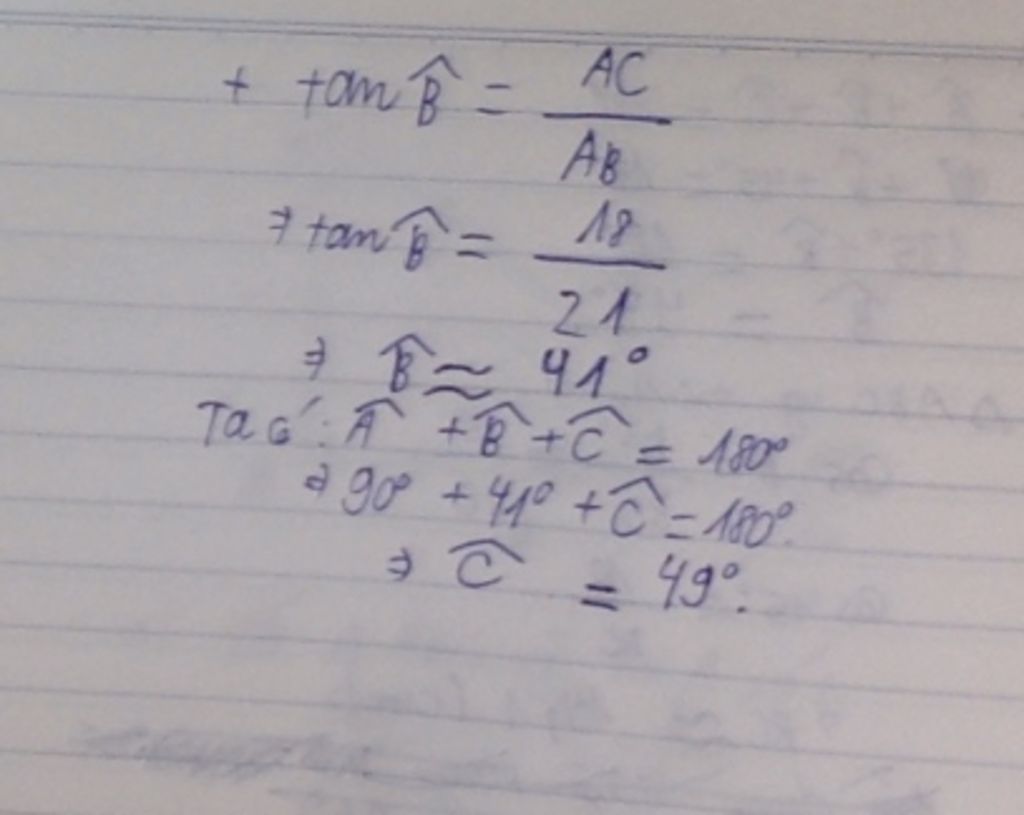 + tan B̂ = AC / AB
⇒ tan B̂ = 18 / 21
⇒ B̂ ≈ 41°
Ta có: Â + B̂ + Ĉ = 180°
⇒ 90° + 41° + Ĉ = 180°
⇒ Ĉ = 49°.